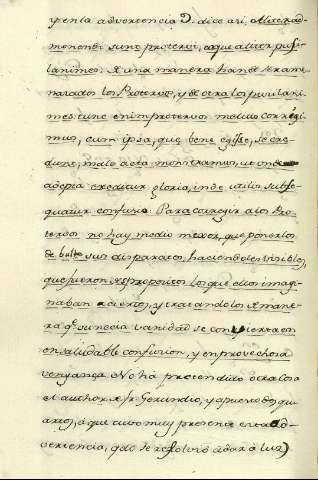 y en la advertencia 9. dice asi, Aliter ad-
monendi sunt protervi, atque aliter pusi-
lanimes. De una manera han de ser amo-
nestados los Protervos, y de otra los pusilani-
mes tunc enim protervos melius corrigi-
mus, cum ipsa, que bene egisse, se cre-
dunt, male acta monstramus, ut unde
adepta creditur gloria, inde utilis subse-
quatur confusio. Para corregir a los Pro-
tervos no hay medio mexor, que ponerlos
de bulto sus disparates, haciendoles visibles,
que fueron despropositos los que ellos imagi-
naban aciertos, y tratandolos de mane-
ra q.e su necia vanidad se convierta en
en saludable confusion, y en provechosa
vengança. No há pretendido otra cosa
el author de fr. Gerundio, y apuesto dos qu-
artos, a que tuvo muy presente esta ad-
vertencia, q.do se resolvió a dar a luz